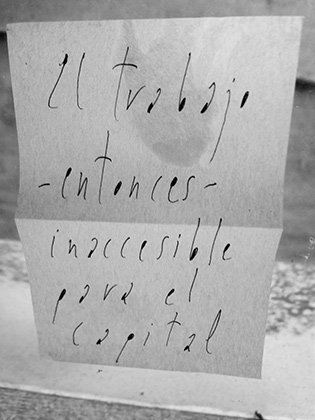 El trabajo
-entonces-
inaccesible
para el
capital